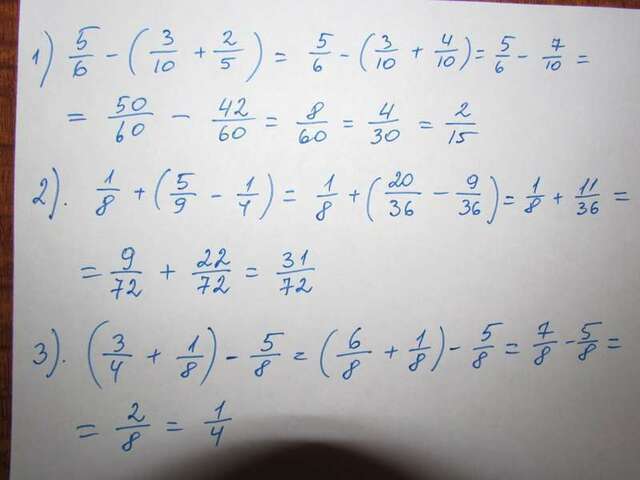 1) 5/6 - (3/10 + 2/5) = 5/6 - (3/10 + 4/10) = 5/6 - 7/10 =
= 50/60 - 42/60 = 8/60 = 4/30 = 2/15
2). 1/8 + (5/9 - 1/4) = 1/8 + (20/36 - 9/36) = 1/8 + 11/36 =
= 9/72 + 22/72 = 31/72
3). (3/4 + 1/8) - 5/8 = (6/8 + 1/8) - 5/8 = 7/8 - 5/8 =
= 2/8 = 1/4